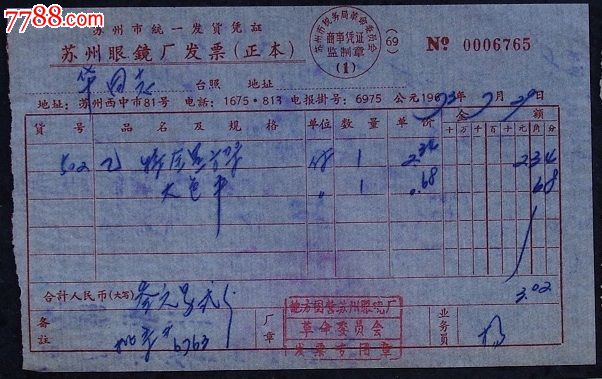 7788.com
苏州市統一发貨凭証
苏州眼鏡厂发票(正本)
苏州市税务局革命委员会
商事凭证
监制章
(1)
(69)
№ 0006765
台照 地址
地址：苏州西中市81号 电話：1675·813 电报掛号：6975 公元196 73年7月 日
貨号 品名及規格 单位 数量 单价 金額
十万千百十元角分
502 1 2.34 2 3 4
大包 〃 1 .68 6 8
合計人民币(大写) 叁元另贰分 3.02
备註 6763
厂章
地方国营苏州眼镜厂
革命委员会
发票专用章
业务員